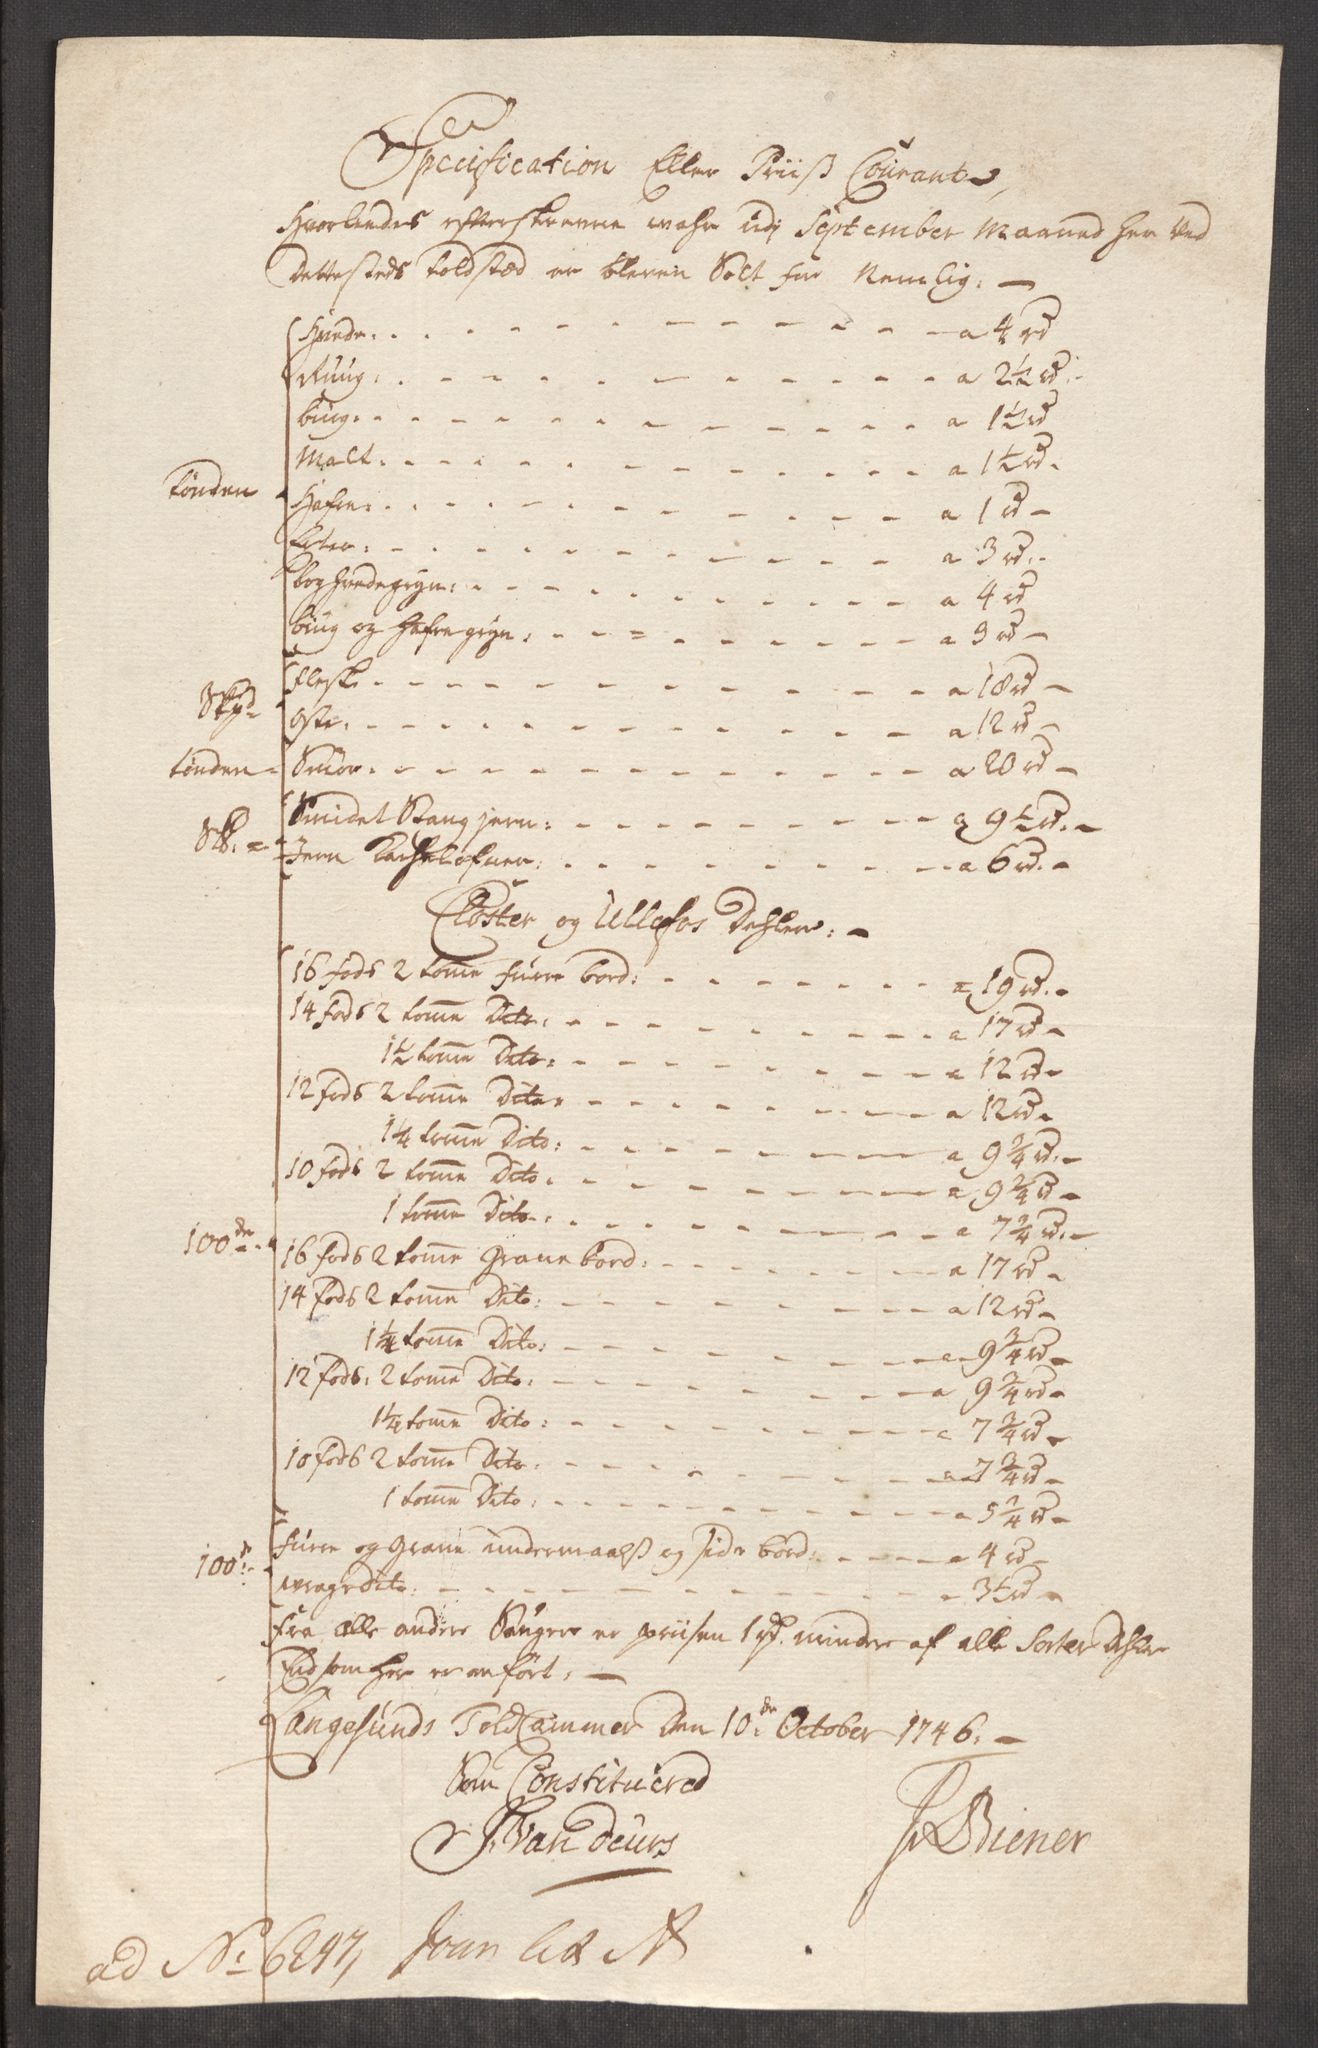 Specification Eller Priiß Courant,
Hvorlendes efterskrevne wahre udj September Maaned her ved
dettesteds toldsted er bleven Solt for Nemlig: -
Hvede: a 4 rd
Rüug: a 2½ rd
büg: a 1½ rd
Malt: a 1½ rd
tönden Hafre: a 1 rd
Erter: a 3 rd
boghvedegryn: a 4 rd
büg og Hafregryn: a 3 rd
Skpd Flesk: a 18 rd
Oste: a 12 rd
tönden Smör: a 20 rd
Smidet Stangjern: a 9½ rd
Sk: Jern Kachelofner: a 6 rd
Closter og Ullefos Dehler: -
16 fods 2 tomme fürre bord: a 19 rd
14 fods 2 tomme Dito: a 17 rd
1½ tomme Dito: a 12 rd
12 fods 2 tomme Dito a 12 rd
1¼ tomme Dito: a 9¾ rd
10 fods 2 tomme Dito: a 9¾ rd
1 tomme Dito: a 7¾ rd
100de 16 fods 2 tomme Grane bord: a 17 rd
14 fods 2 tomme Dito: a 12 rd
1¼ tomme Dito: a 9¾ rd
12 fods: 2 tomme Dito: a 9¾ rd
1¼ tomme Dito: a 7¾ rd
10 fods 2 tomme Dito: a 7¾ rd
1 tomme Dito: a 5¾ rd
100de fürre og Grane undermaalß og side bord: a 4 rd
wrage Dito: a 3½ rd
Fra alle andre Sauger er priisen 1 rd. mindre af alle Sorter Dehler
End som her er anfört: -
Langesunds ToldCammer Den 10de October 1746: -
Som Constituered
van Deurs Biener
ad No: 6247,